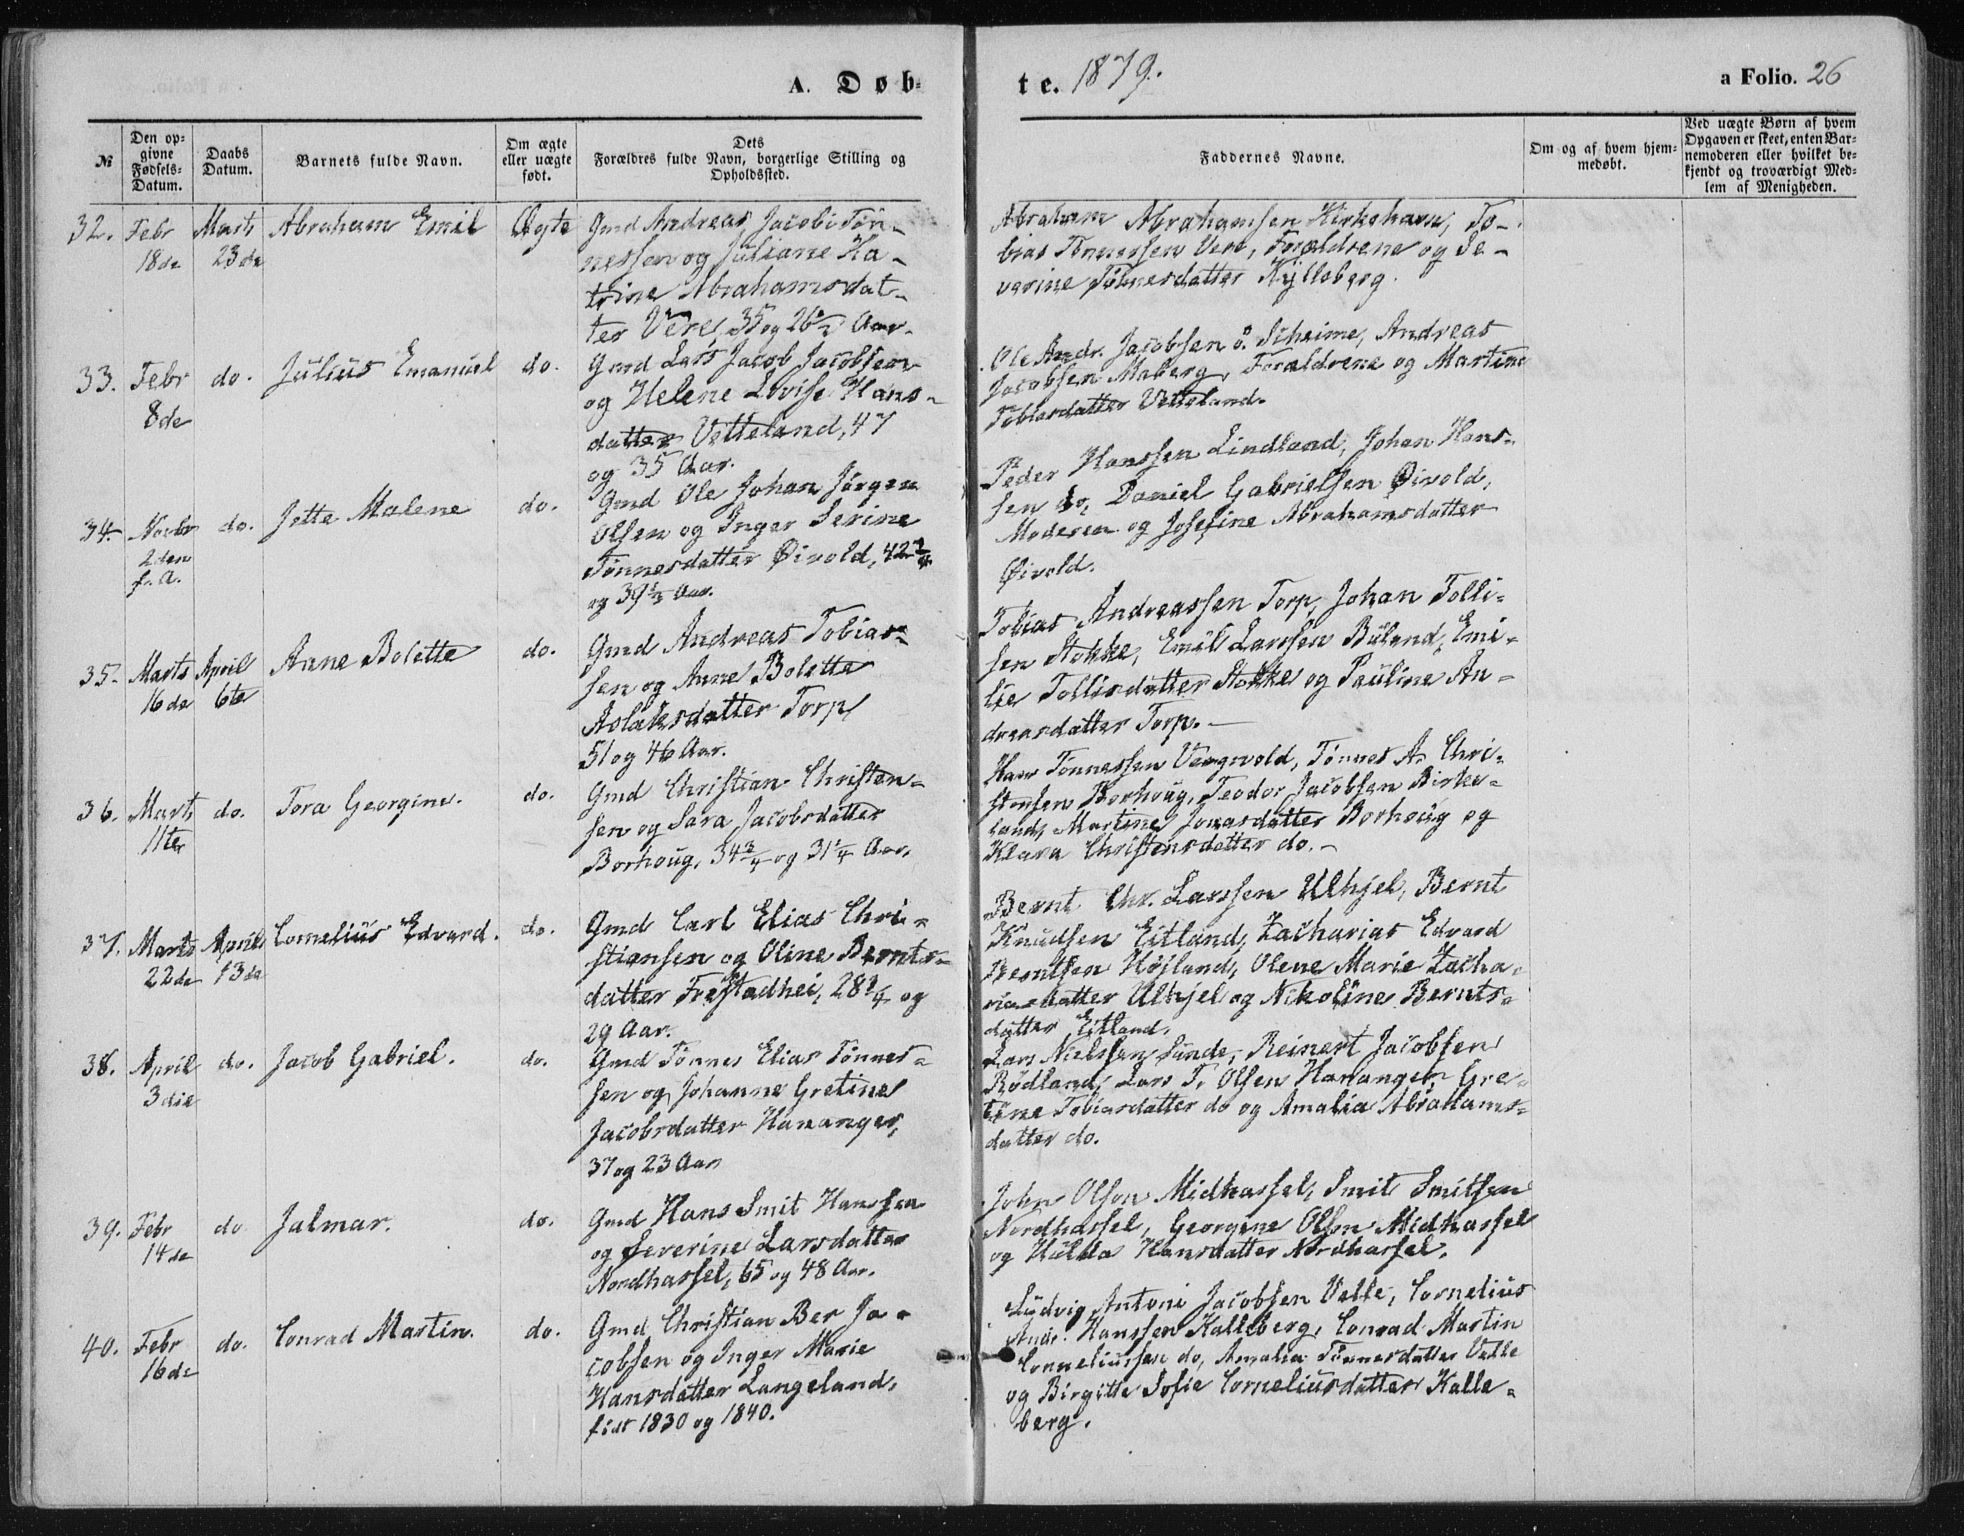 A. Døb-
te. 1879.
a Folio. 26
№
Den op-
givne
Fødsels-
Datum.
Daabs
Datum.
Barnets fulde Navn.
Om ægte
eller uægte
født.
Dets
Forældres fulde Navn, borgerlige Stilling og
Opholdssted.
Faddernes Navne.
Om og af hvem hjem-
medøbt.
Ved uægte Børn af hvem
Opgaven er skeet, enten Bar-
nemoderen eller hvilket be-
kjendt og troværdigt Med-
lem af Menigheden.
32.
Febr
18de
Marts
23de
Abraham Emil
Ægte
Gmd Andreas Jacobi Tøn-
nessen og Juliane Ka-
trine Abrahamsdat-
ter Vere, 35 og 26 Aar.
Abraham Abrahamsen Kirkehavn, To-
bias Tønnessen Vere, Forældrene og Se-
verine Tønnesdatter Kylleberg.
33.
Febr
8de
do.
Julius Emanuel
do.
Gmd Lars Jacob Jacobsen
og Helene Lovise Hans-
datter Vetteland, 47
og 35 Aar.
Ole Andr. Jacobsen ø. Skeime, Andreas
Jacobsen Maberg, Forældrene og Martine
Tobiasdatter Vetteland.
34.
Novbr
2den
f. A.
do.
Jette Malene
do.
Gmd Ole Johan Jørgen
Olsen og Inger Serine
Tønnesdatter Øivold, 42
og 39 1/3 Aar.
Peder Hanssen Lindland, Johan Hans-
sen do, Daniel Gabrielsen Øivold,
Moderen og Josefine Abrahamsdatter
Øivold.
35.
Marts
16de
April
6te
Anne Bolette
do.
Gmd Andreas Tobias-
sen og Anne Bolette
Aslaksdatter Torp
51 og 46 Aar.
Tobias Andreassen Torp, Johan Tolli-
sen Stokke, Emil Larssen Buland, Emi-
lie Tollisdatter Stokke og Pauline An-
dreasdatter Torp.
36.
Marts
11te
do.
Tora Georgine.
do.
Gmd Christian Christen-
sen og Sara Jacobsdatter
Borhoug, 34 3/4 og 31 1/4 Aar.
Hans Tønnessen Vægvold, Tønnes A. Chri-
stensen Borhoug, Teodor Jacobsen Birke-
land, Martine Jonasdatter Borhoug og
Klara Christensdatter do.
37.
Marts
22de
April
13de
Cornelius Edvard.
do.
Gmd Carl Elias Chri-
stiansen og Oline Bernts-
datter Frestadhei, 28 3/4 og
29 Aar.
Bernt Chr. Larssen Ulhjel, Bernt
Knudsen Eitland, Zacharias Edvard
Berntsen Høiland, Olene Marie Zacha-
riasdatter Ulhjel og Nikoline Bernts-
datter Eitland.
38.
April
3die
do.
Jacob Gabriel.
do.
Gmd Tønnes Elias Tønnes-
sen og Johanne Gretine
Jacobsdatter Hananger,
37 og 23 Aar
Lars Nielssen Sunde, Reinert Jacobsen
Rødland, Lars T. Olsen Hananger, Gre-
tine Tobiasdatter do og Amalia Abrahams-
datter do.
39.
Febr
14de
do
Jalmar.
do.
Gmd Hans Smit Hanssen
og Severine Larsdatter
Nordhassel, 65 og 48 Aar.
John Olson Midhassel, Smit Smitsen
Nordhassel, Georgine Olson Midhassel
og Hulda Hansdatter Nordhassel.
40.
Febr
16de
do.
Conrad Martin.
do.
Gmd Christian Ber Ja-
cobsen og Inger Marie
Hansdatter Langeland,
født 1830 og 1840.
Ludvig Antoni Jacobsen Velle, Cornelius
Andr. Hanssen Kalleberg, Conrad Martin
Corneliussen do, Amalia Tønnesdatter Velle
og Birgitte Sofie Corneliusdatter Kalle-
berg.